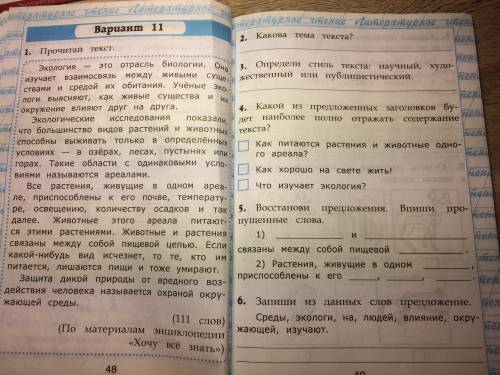 Литературное чтение «Литературное чте
Вариант 11
1. Прочитай текст.
Экология — это отрасль биологии. Она
изучает взаимосвязь между живыми суще-
ствами и средой их обитания. Учёные эко-
логи выясняют, как живые существа и их
окружение влияют друг на друга.
Экологические исследования показали,
что большинство видов растений и животных
способны выживать только в определённых
условиях — в озёрах, лесах, пустынях или
горах. Такие области с одинаковыми усло-
виями называются ареалами.
Все растения, живущие в одном ареа-
ле, приспособлены к его почве, температу-
ре, освещению, количеству осадков и так
далее. Животные этого ареала питают-
ся этими растениями. Животные и растения
связаны между собой пищевой цепью. Если
какой-нибудь вид исчезнет, то те, кто им
питается, лишаются пищи и тоже умирают.
Защита дикой природы от вредного воз-
действия человека называется охраной окру-
жающей среды.
(111 слов)
(По материалам энциклопедии
«Хочу всё знать»)
48
2. Какова тема текста?
3. Определи стиль текста: научный, худо-
жественный или публицистический.
4. Какой из предложенных заголовков бу-
дет наиболее полно отражать содержание
текста?
Как питаются растения и животные одно-
го ареала?
Как хорошо на свете жить!
Что изучает экология?
5. Восстанови предложения. Впиши про-
пущенные слова.
1) и
связаны между собой пищевой .
2) Растения, живущие в одном ,
приспособлены к его , ,
6. Запиши из данных слов предложение.
Среды, экологи, на, людей, влияние, окру-
жающей, изучают.
49